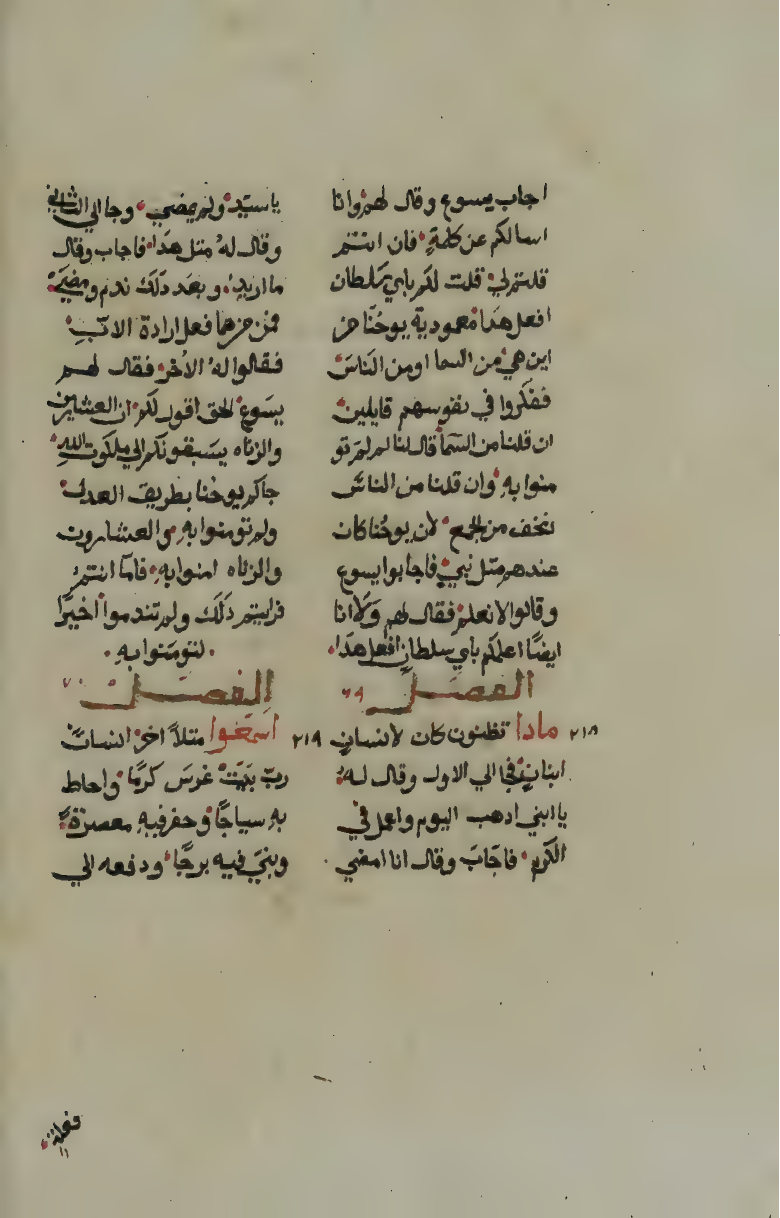 اجاب يسوع وقال لهم وانا
اسالكم عن كلمةٍ فان انتم
قلتم لي قلت لكم باي سلطان
افعل هدا معمودية يوحنا من
اين هي من السما او من الناس
ففكروا في نفوسهم قايلين
ان قلنا من السما قال لنا لم لم تو
منوا به وان قلنا من الناس
نخف من الجمع لان يوحنا كان
عندهم متل نبي فاجابوا يسوع
وقالوا لا نعلم فقال لهم ولا انا
ايضًا اعلمكم باي سلطان افعل هدا
الفصل ٦٩
٢١٨ مادا تظنون كان لانسانٍ
ابنان فجا الي الاول وقال له
يا ابني ادهب اليوم واعمل في
الكرم فاجاب وقال انا امضي
يا سيد ولم يمضي وجا الي الثاني
وقال له متل هدا فاجاب وقال
ما اريد وبعد دلك ندم ومضي
فمن منهما فعل ارادة الاب
فقالوا له الاخر فقال لهم
يسوع الحق اقول لكم ان العشارين
والزناه يسبقونكم الي ملكوت الله
جاكم يوحنا بطريق العدل
ولم تومنوا به والعشارون
والزناه امنوا به فاما انتم
فرايتم دلك ولم تندموا اخيرًا
لتومنوا به
الفصل ٧٠
٢١٩ اسمعوا متلاً اخر انسان
ربّ بيت غرس كرمًا واحاط
به سياجًا وحفر فيه معصرة
وبني فيه برجًا ودفعه الي
فعلة